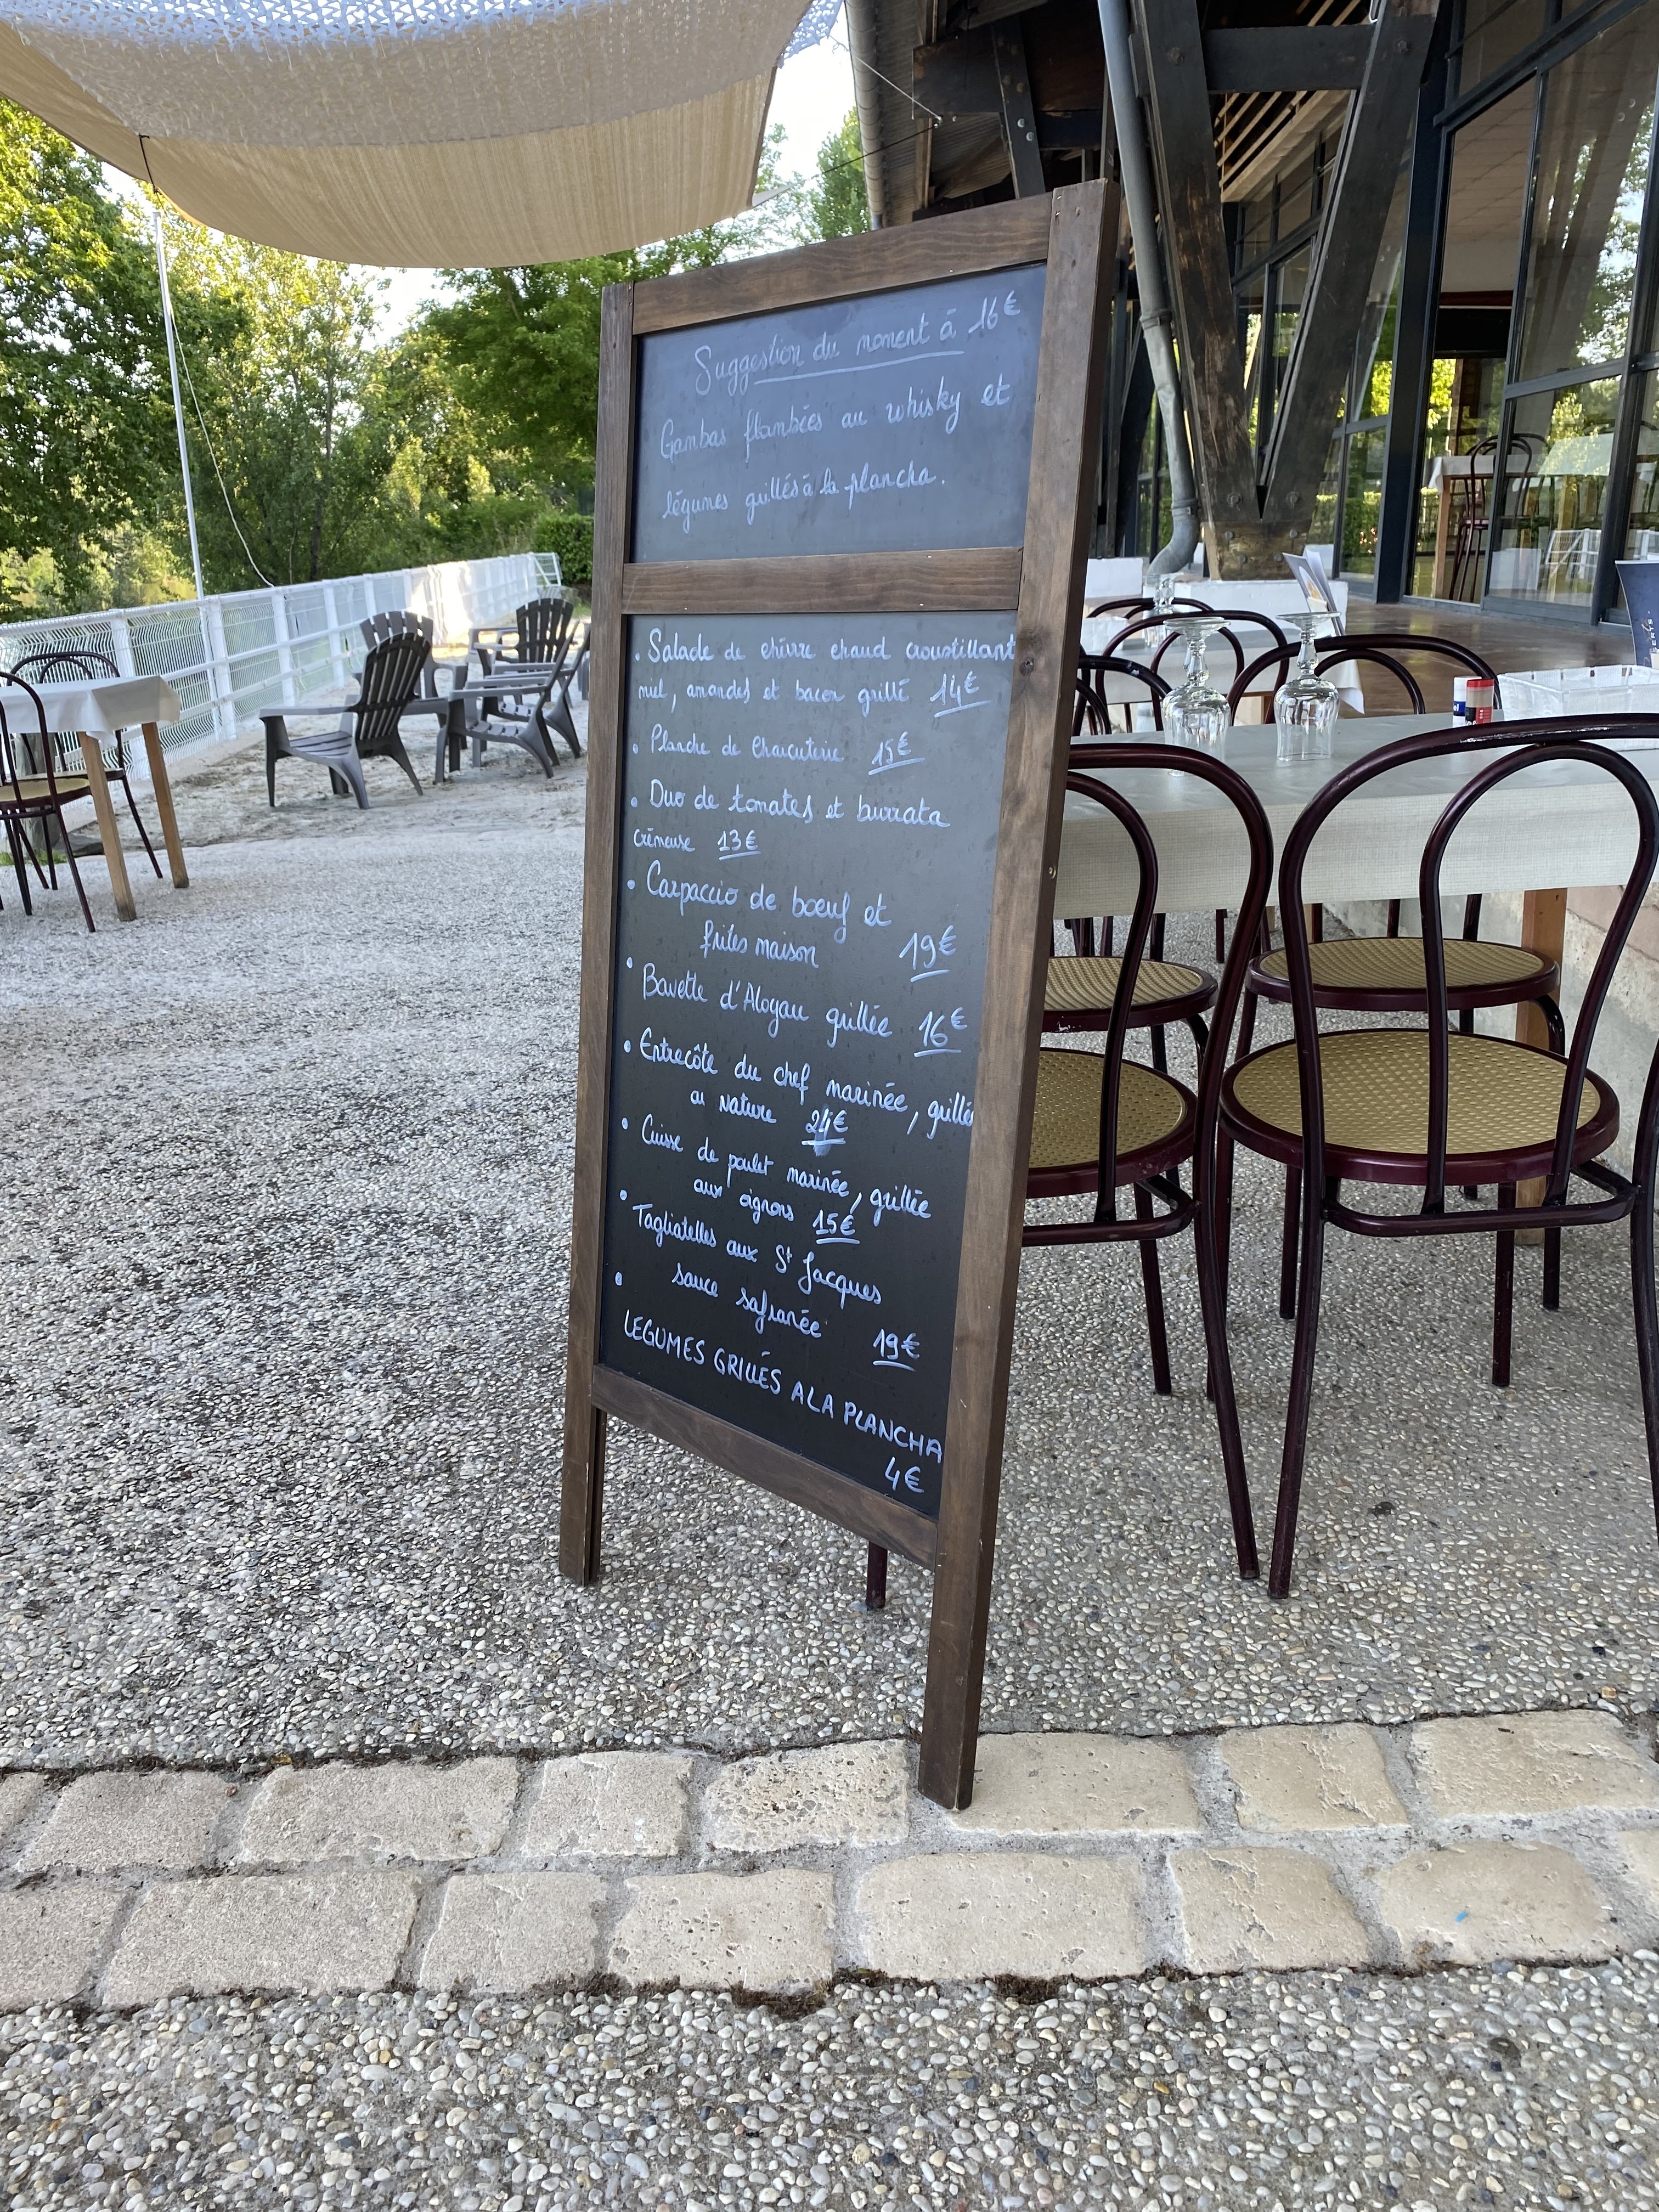 Suggestion du moment à 16€
Gambas flambées au whisky et
légumes grillés à la plancha.
• Salade de chèvre chaud croustillant
miel, amandes et bacon grillé 14€
• Planche de Charcuterie 15€
• Duo de tomates et burrata
crémeuse 13€
• Carpaccio de bœuf et
frites maison 19€
• Bavette d'Aloyau grillée 16€
• Entrecôte du chef marinée, grillée
au Nature 24€
• Cuisse de poulet marinée, grillée
aux oignons 15€
• Tagliatelles aux St Jacques
sauce safranée 19€
• LEGUMES GRILLÉS A LA PLANCHA
4€